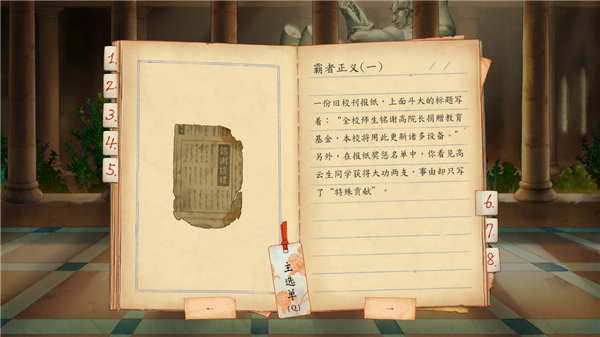 1.
2.
3.
4.
5.
霸者正义(一)
一份旧校刊报纸，上面斗大的标题写
着：“全校师生铭谢高院长捐赠教育
基金，本校将用此更新诸多设备。”
另外，在报纸奖惩名单中，你看见高
云生同学获得大功两支，事由却只写
了“特殊贡献”。
6.
7.
8.
主选单
(Q)
←
→